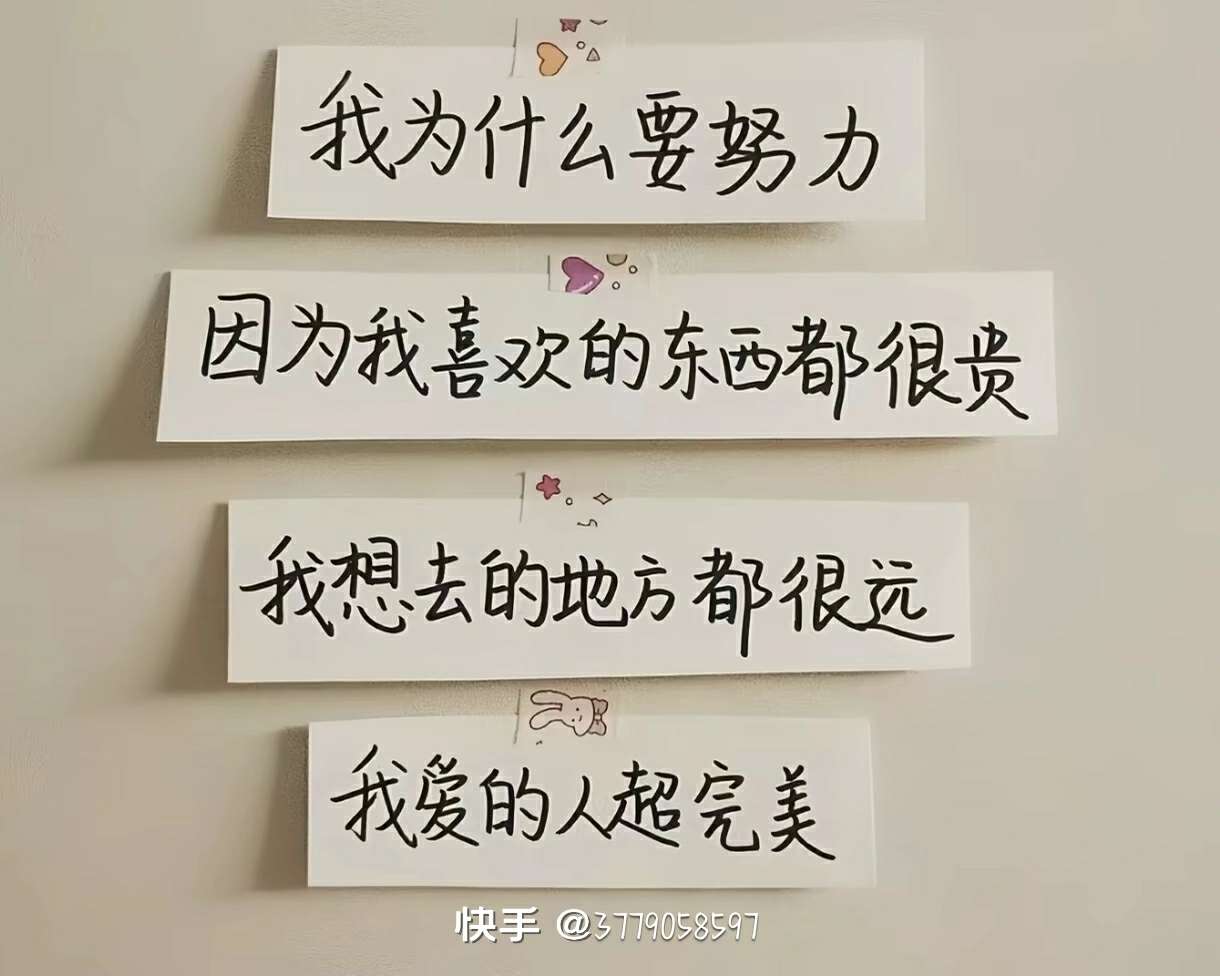 我为什么要努力
因为我喜欢的东西都很贵
我想去的地方都很远
我爱的人超完美
快手 @3779058597